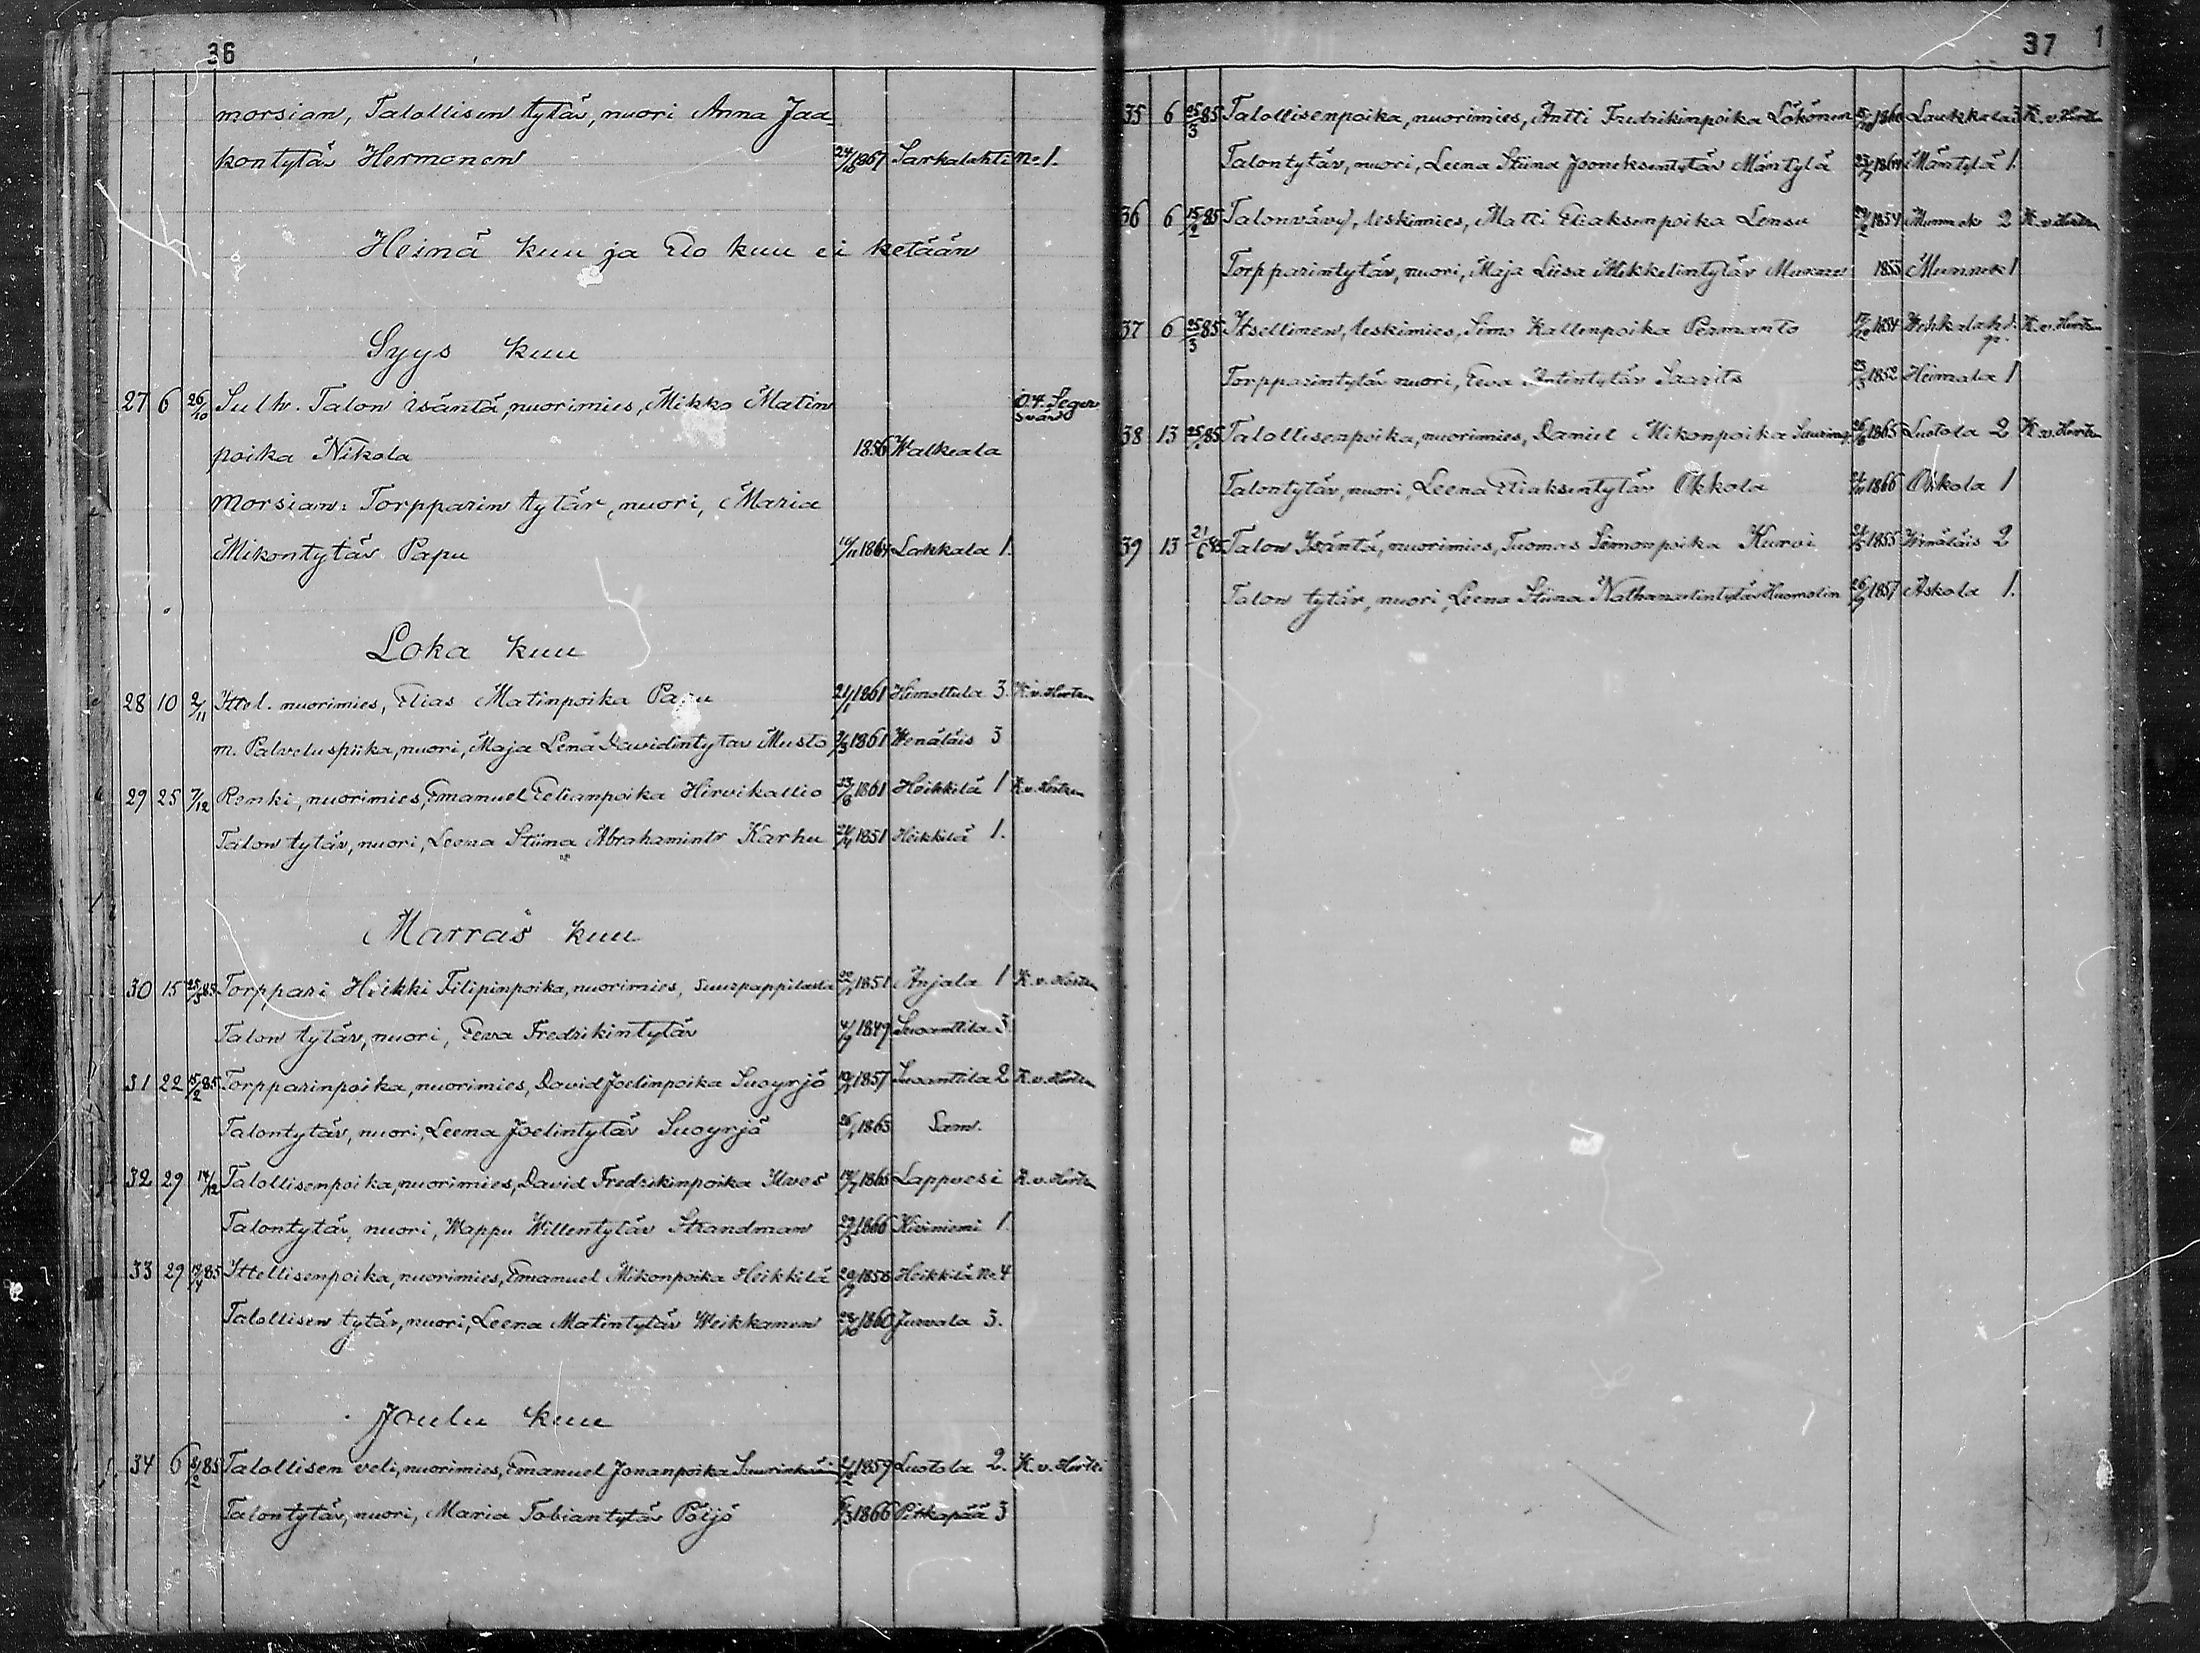 36
morsian, Talollisen tytär, nuori Anna Jaa-
kontytär Hermonen 24/10 1867 Sarkalahti No 1.
Heinä kuu ja Elo kuu ei ketään
Syys kuu
27 6 26/10 Sulh. Talon isäntä, nuorimies, Mikko Matin
poika Nikola 1856 Walkeala
morsian: Torpparin tytär, nuori, Maria
Mikontytär Papu 1864 Lakkala 1.
Loka kuu
28 10 2/11 Ittel. nuorimies, Elias Matinpoika Papu 21/1 1861 Himottula 3. K. v. Hertzen
m. Palveluspiika, nuori, Maja Lena Davidintytär Musto 1861 Wenäläis 3
29 25 7/12 Renki, nuorimies, Emanuel Eelianpoika Hirvikallio 1861 Heikkilä 1 K. v. Hertzen
Talon tytär, nuori, Leena Stiina Abrahamintr Karhu 1851 Heikkilä 1.
Marras kuu
30 15 25/3 85 Torppari Heikki Filipinpoika, nuorimies, Suurpappilasta 1851 Anjala 1 K. v. Hertzen
Talon tytär, nuori, Eeva Fredrikintytär 1849 Suoanttila 3
31 22 15/2 85 Torpparinpoika, nuorimies, David Joelinpoika Suoyrjö 1857 Suoanttila 2 K. v. Hertzen
Talontytär, nuori, Leena Joelintytär Suoyrjö 1863 Sam.
32 29 14/12 Talollisenpoika, nuorimies, David Fredrikinpoika Ilves 1865 Lappvesi K. v. Hertzen
Talontytär, nuori, Wappu Willentytär Strandman 1866 Kiviniemi 1.
33 29 85 Ittellisenpoika, nuorimies, Emanuel Mikonpoika Heikkilä 1858 Heikkilä No 4
Talollisen tytär, nuori, Leena Matintytär Weikkanen 1860 Jurvala 3.
Joulu kuu
34 6 85 Talollisen veli, nuorimies, Emanuel Jonanpoika 1859 Luotola 2. K. v. Hertzen
Talontytär, nuori, Maria Tobiantytär Pöljö 1866 Pitkäpää 3
37 1
35 6 25/3 85 Talollisenpoika, nuorimies, Antti Fredrikinpoika Lökönen 1860 Laukkala 3 K. v. Hertzen
Talontytär, nuori, Leena Stiina Jooneksentytär Mäntylä 1864 Mäntylä 1.
36 6 15/2 85 Talonvävy, leskimies, Matti Eliaksenpoika Lensu 1854 2 K. v. Hertzen
Torpparintytär, nuori, Maja Liisa Mikkelintytär 1855 1
37 6 25/3 85 Itsellinen, leskimies, Simo Kallenpoika Permanto 1854 K. v. Hertzen
Torpparintytär nuori, Eeva Antintytär 1852 Heimala 1
38 13 85 Talollisenpoika, nuorimies, Daniel Mikonpoika 1865 Luotola 2 K. v. Hertzen
Talontytär, nuori, Leena Eliaksentytär Okkola 1866 1
39 13 85 Talon Isäntä, nuorimies, Tuomas Simonpoika Kurvi 1855 Wenäläis 2
Talon tytär, nuori, Leena Stiina Nathanaelintytär Huomolin 1857 Askola 1.